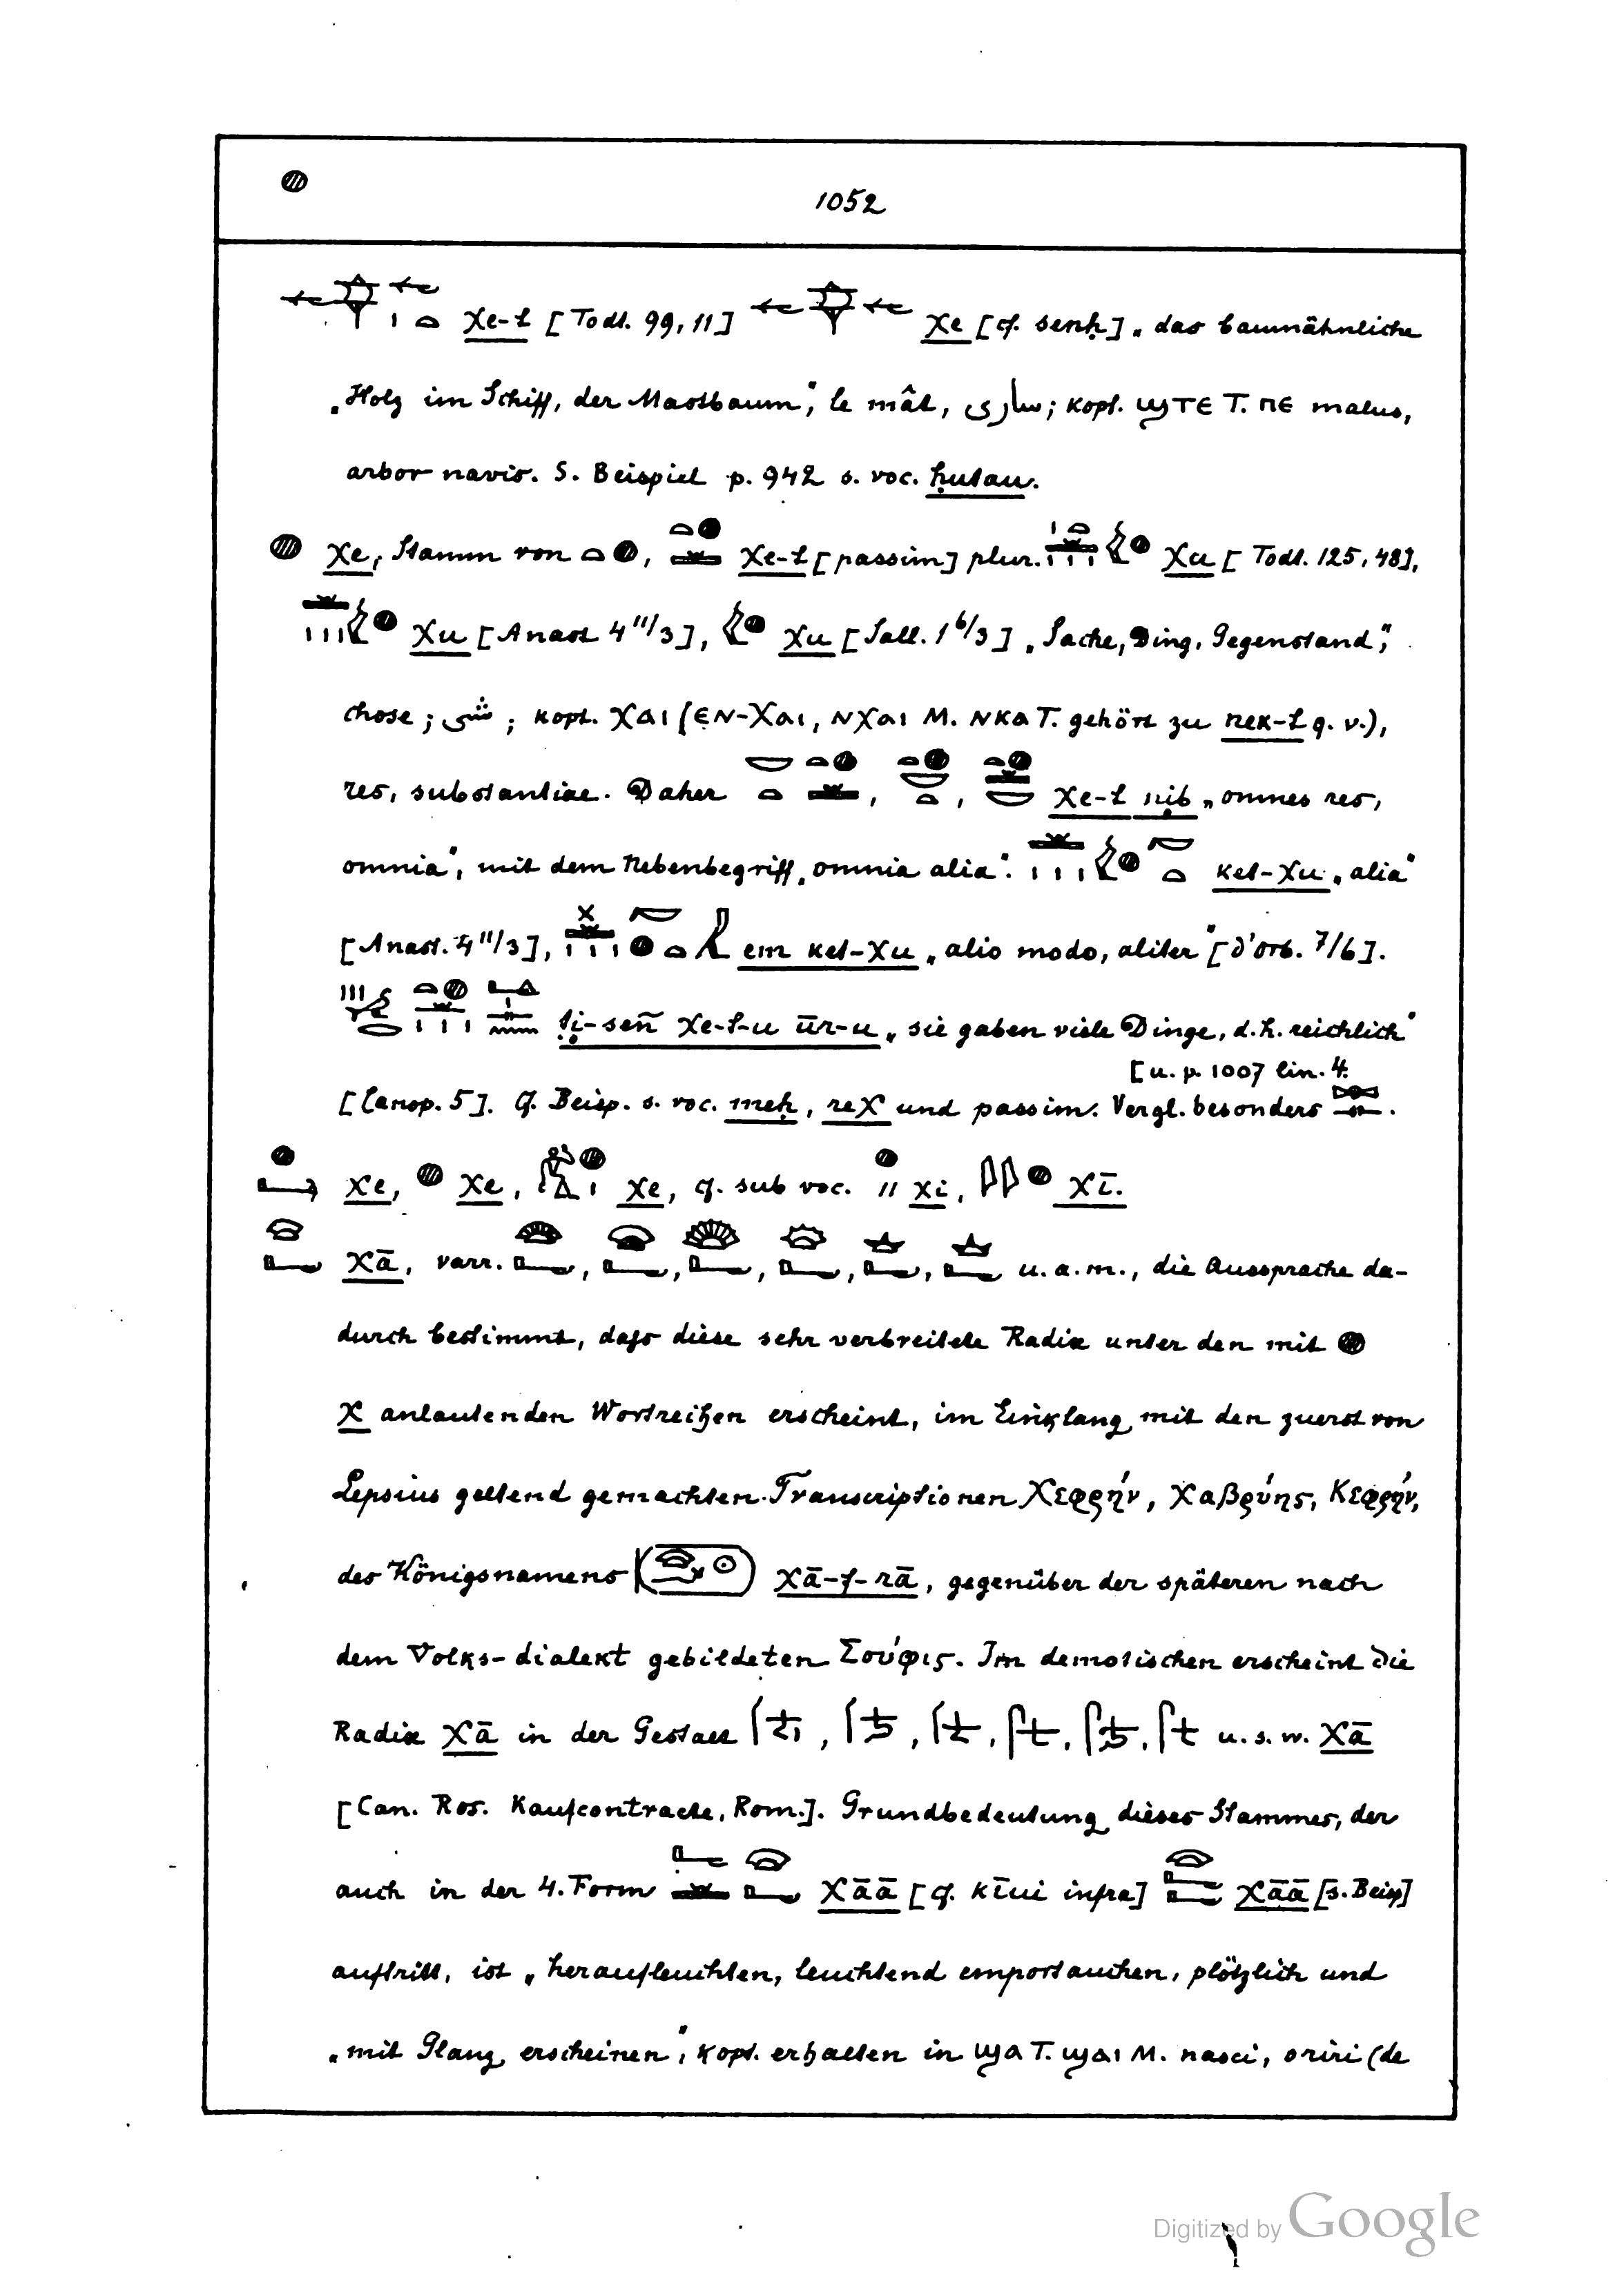 1052
χe-t [Todt. 99, 11] χe [cf. senḥ] „das baumähnliche
„Holz im Schiff, der Mastbaum“, le mât, سارى; kopt. ϣⲧⲉ T. ⲡⲉ malus,
arbor navis. S. Beispiel p. 942 s. voc. ḥutau.
χe, Stamm von , χe-t [passim] plur. χu [Todt. 125, 48],
χu [Anast 4 11/3], χu [Sall. 1 6/3] „Sache, Ding, Gegenstand“,
chose; شى; kopt. ⲭⲁⲓ (ⲉⲛ-ⲭⲁⲓ, ⲛⲭⲁⲓ M. ⲛⲕⲁ T. gehört zu nek-t q. v.),
res, substantiae. Daher , , χe-t nib „omnes res,
omnia“, mit dem Nebenbegriff „omnia alia“. ket-χu „alia“
[Anast. 4 11/3], em ket-χu „alio modo, aliter“ [d'Orb. 7/6].
ti-sen χe-t-u ūr-u „sie gaben viele Dinge, d.h. reichlich“
[u. p. 1007 lin. 4.
[Canop. 5]. Cf. Beisp. s. voc. meḥ, reχ und passim. Vergl. besonders .
χe, χe, χe, cf. sub voc. χi, χī.
χā, varr. , , , , , u. a. m., die Aussprache da-
durch bestimmt, daſs diese sehr verbreitete Radix unter den mit
χ anlautenden Wortreihen erscheint, im Einklang mit den zuerst von
Lepsius geltend gemachten Transcriptionen Χεφρήν, Χαβρύης, Κεφρήν,
des Königsnamens χā-f-rā, gegenüber der späteren nach
dem Volks-dialekt gebildeten Σούφις. Im demotischen erscheint die
Radix χā in der Gestalt , , , , , u. s. w. χā
[Can. Ros. Kaufcontracte, Rom.]. Grundbedeutung dieses Stammes, der
auch in der 4. Form χāā [cf. kīui infra] χāā [s. Beisp]
auftritt, ist „heraufleuchten, leuchtend emportauchen, plötzlich und
„mit Glanz erscheinen“, kopt. erhalten in ϣⲁ T. ϣⲁⲓ M. nasci, oriri (de
Digitized by Google